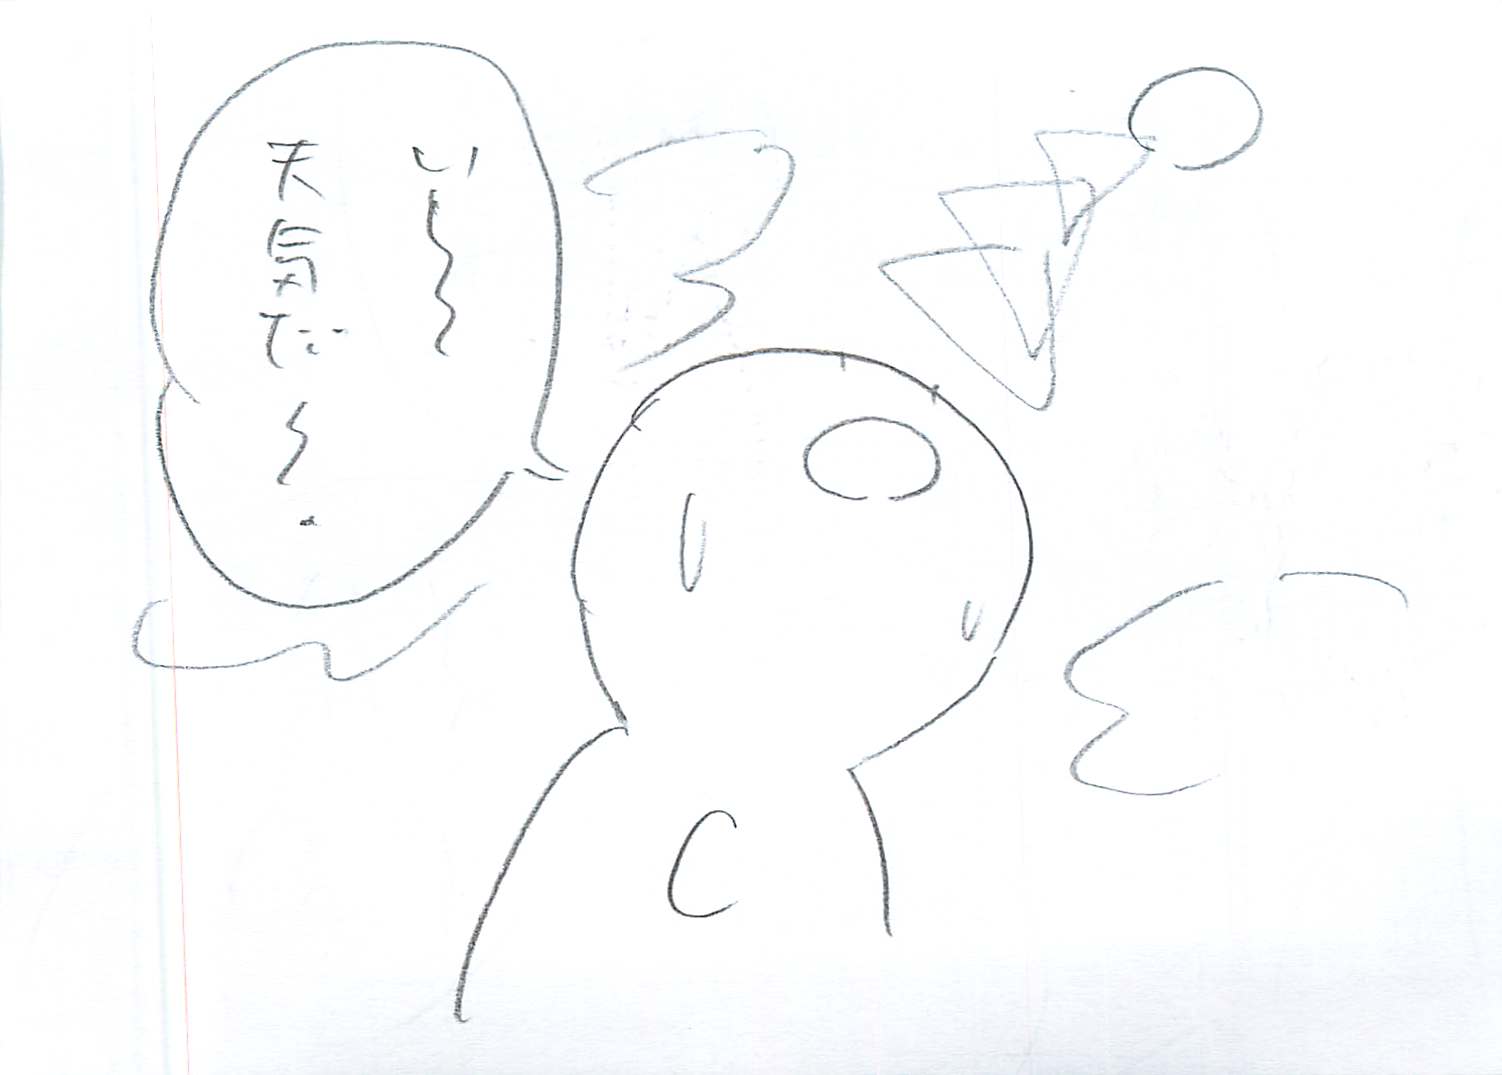 い〜
天気だ〜.
C